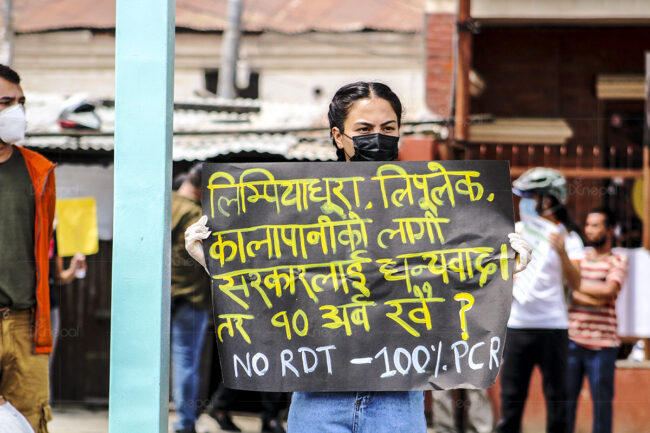 लिम्पियाधुरा, लिपुलेक,
कालापानीको लागी
सरकारलाई धन्यवाद।
तर १० अर्ब खै ?
NO RDT - 100% PCR